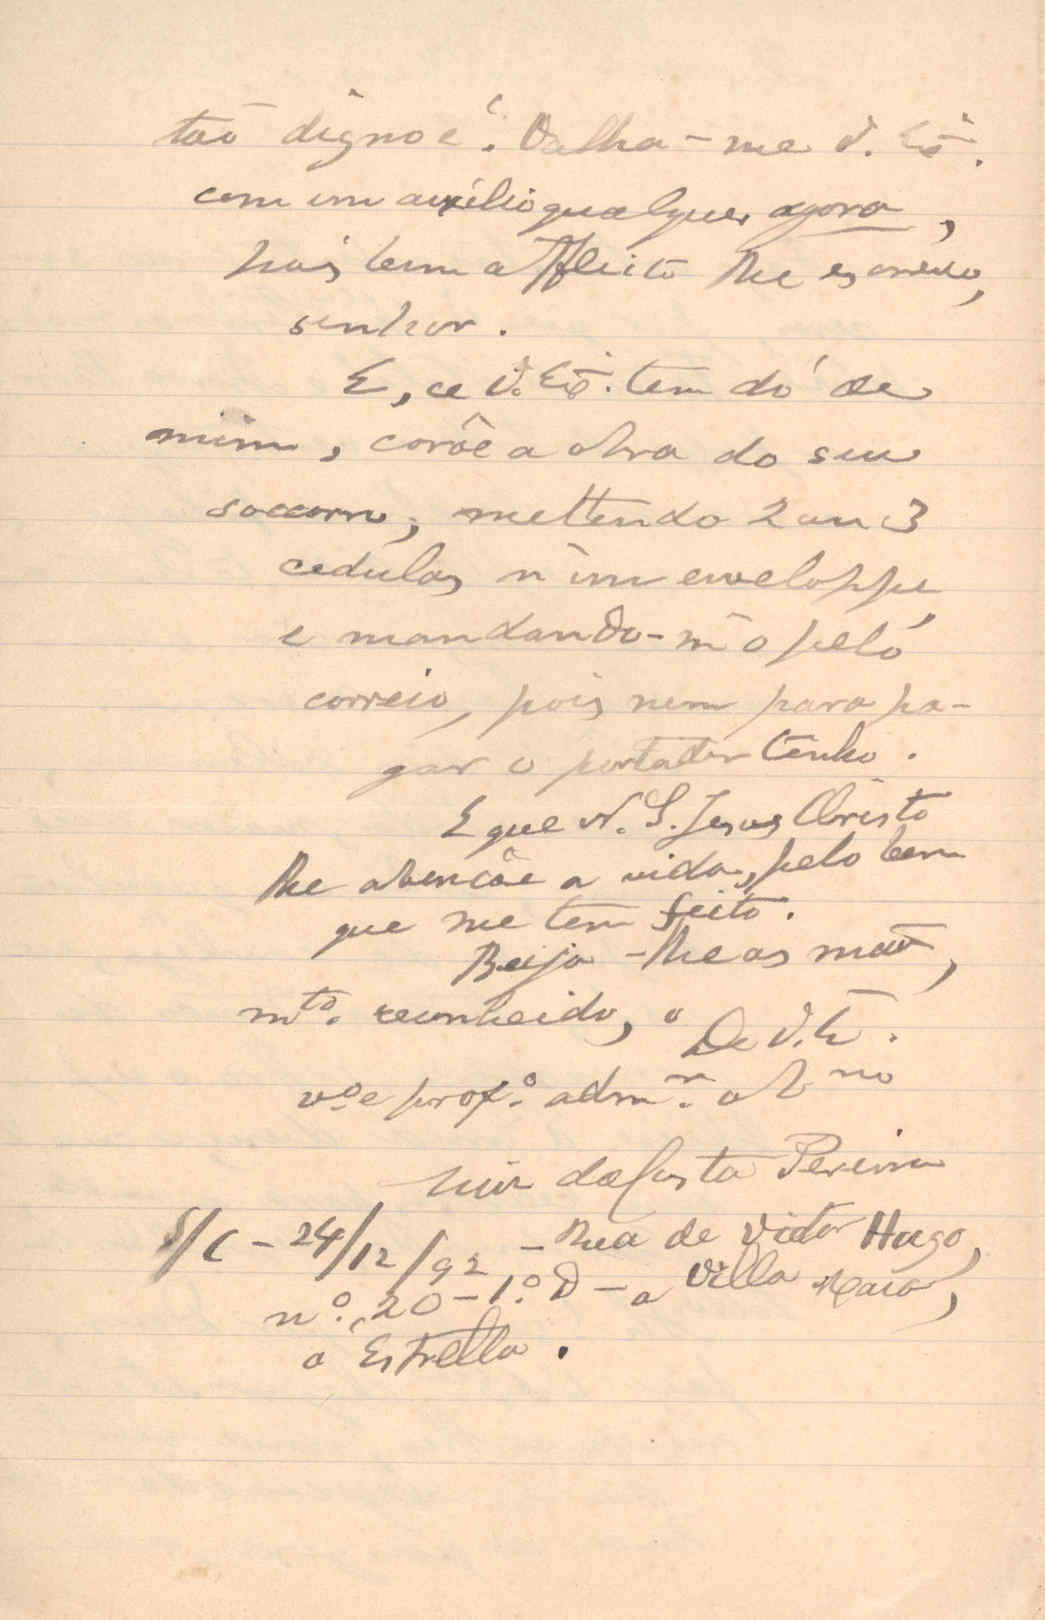 tao digno é. Valha-me V. Exª.
com um auxilio qualquer agora,
pois bem afflicto lhe escrevo,
senhor.
E, ce V. Exª. tem dó de
mim, corôe a obra do seu
soccorro, mettendo 2 ou 3
cedulas n'um enveloppe
e mandando-m'o pelo
correio, pois nem para pa-
gar o portador tenho.
E que N. S. Jesus Christo
lhe abençôe a vida, pelo bem
que me tem feito.
Beija-lhe as mãos,
mto. reconhecido, o
De V. Exª.
vº. e prof.º adm.r obno
Luiz da Costa Pereira
S/C - 24/12/92 - Rua de Victor Hugo,
nº. 20 - 1.º D - a Villa Maia,
á Estrella.